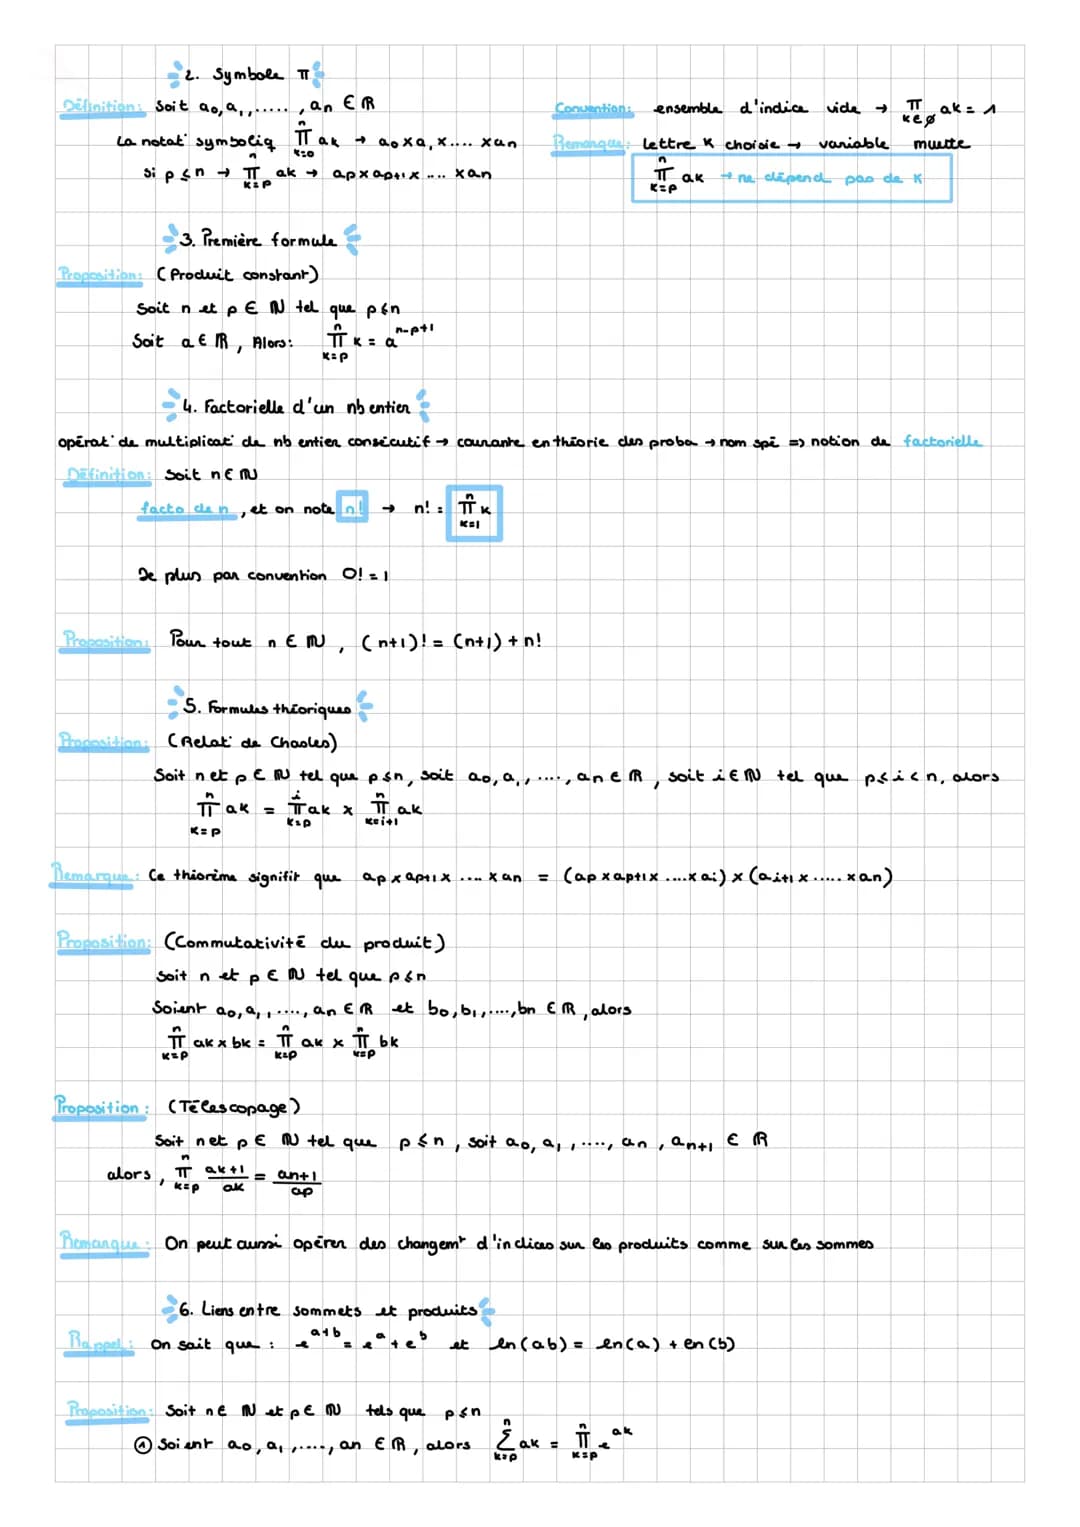 2. Symbole π
Définition: Soit a0, a1, ....., an ∈ ℝ
La notat° symboliq ∏_{k=0}^{n} ak → a0 x a1 x .... x an
si p ≤ n → ∏_{k=p}^{n} ak → ap x ap+1 x .... x an
Convention: ensemble d'indice vide → ∏_{k∈∅} ak = 1
Remarque: lettre k choisie → variable muette
∏_{k=p}^{n} ak → ne dépend pas de k
3. Première formule
Proposition: (Produit constant)
Soit n et p ∈ ℕ tel que p ≤ n
Soit a ∈ ℝ, Alors: ∏_{k=p}^{n} k = a^{n-p+1}
4. Factorielle d'un nb entier
opérat° de multiplicat° de nb entier consécutif → courante en théorie des proba → nom spé => notion de factorielle
Définition: Soit n ∈ ℕ
facto de n, et on note n! → n! = ∏_{k=1}^{n} k
De plus par convention 0! = 1
Proposition: Pour tout n ∈ ℕ, (n+1)! = (n+1) + n!
5. Formules théoriques
Proposition: (Relat° de Chasles)
Soit n et p ∈ ℕ tel que p ≤ n, soit a0, a1, ...., an ∈ ℝ, soit i ∈ ℕ tel que p ≤ i < n, alors
∏_{k=p}^{n} ak = ∏_{k=p}^{i} ak x ∏_{k=i+1}^{n} ak
Remarque: Ce théorème signifit que ap x ap+1 x .... x an = (ap x ap+1 x ....x ai) x (ai+1 x ..... x an)
Proposition: (Commutativité du produit)
Soit n et p ∈ ℕ tel que p ≤ n
Soient a0, a1, ...., an ∈ ℝ et b0, b1, ...., bn ∈ ℝ, alors
∏_{k=p}^{n} ak x bk = ∏_{k=p}^{n} ak x ∏_{k=p}^{n} bk
Proposition: (Télescopage)
Soit n et p ∈ ℕ tel que p ≤ n, soit a0, a1, ...., an, an+1 ∈ ℝ
alors, ∏_{k=p}^{n} ak+1/ak = an+1/ap
Remarque: On peut aussi opérer des changemt d'indices sur les produits comme sur les sommes
6. Liens entre sommets et produits
Rappel: On sait que : e^{a+b} = e^a + e^b et ln(ab) = ln(a) + ln(b)
Proposition: Soit n ∈ ℕ et p ∈ ℕ tels que p ≤ n
① Soient a0, a1, ...., an ∈ ℝ, alors ∑_{k=p}^{n} ak = ∏_{k=p}^{n} e^{ak}